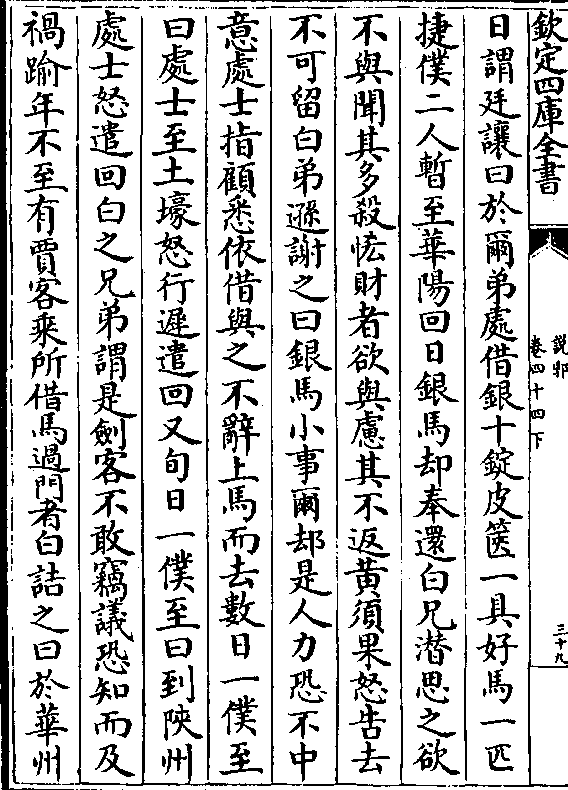 欽定四庫全書
説郛
卷四十四下
三十九
日謂廷讓曰於爾弟處借銀十錠皮篋一具好馬一匹
捷僕二人暫至華陽回日銀馬却奉還白兄潜思之欲
不與聞其多殺恡財者欲與慮其不返黃須果怒告去
不可留白弟遜謝之曰銀馬小事爾却是人力恐不中
意處士指顧悉依借與之不辭上馬而去數日一僕至
曰處士至土壕怒行遲遣回又旬日一僕至曰到陜州
處士怒遣回白之兄弟謂是劍客不敢竊議恐知而及
禍踰年不至有賈客乘所借馬過門者白詰之曰於華州